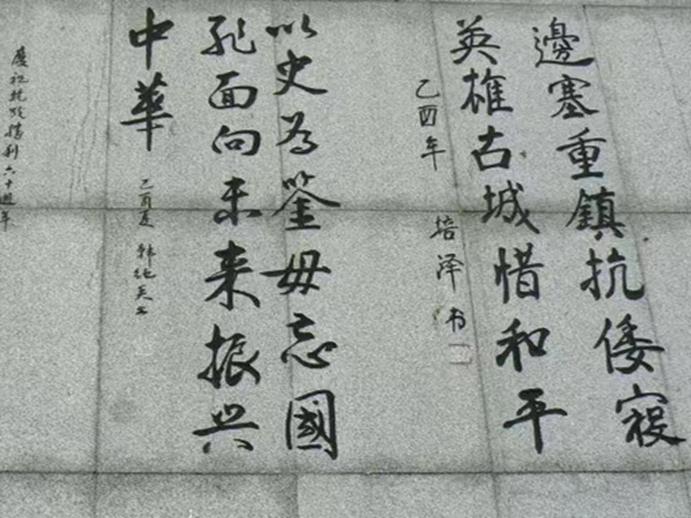 邊塞重鎮抗倭寇
英雄古城惜和平
乙酉年 培泽书
以史为鉴毋忘國
耻面向未来振兴
中華
乙酉夏 韩纯英书
慶祝抗战勝利六十週年